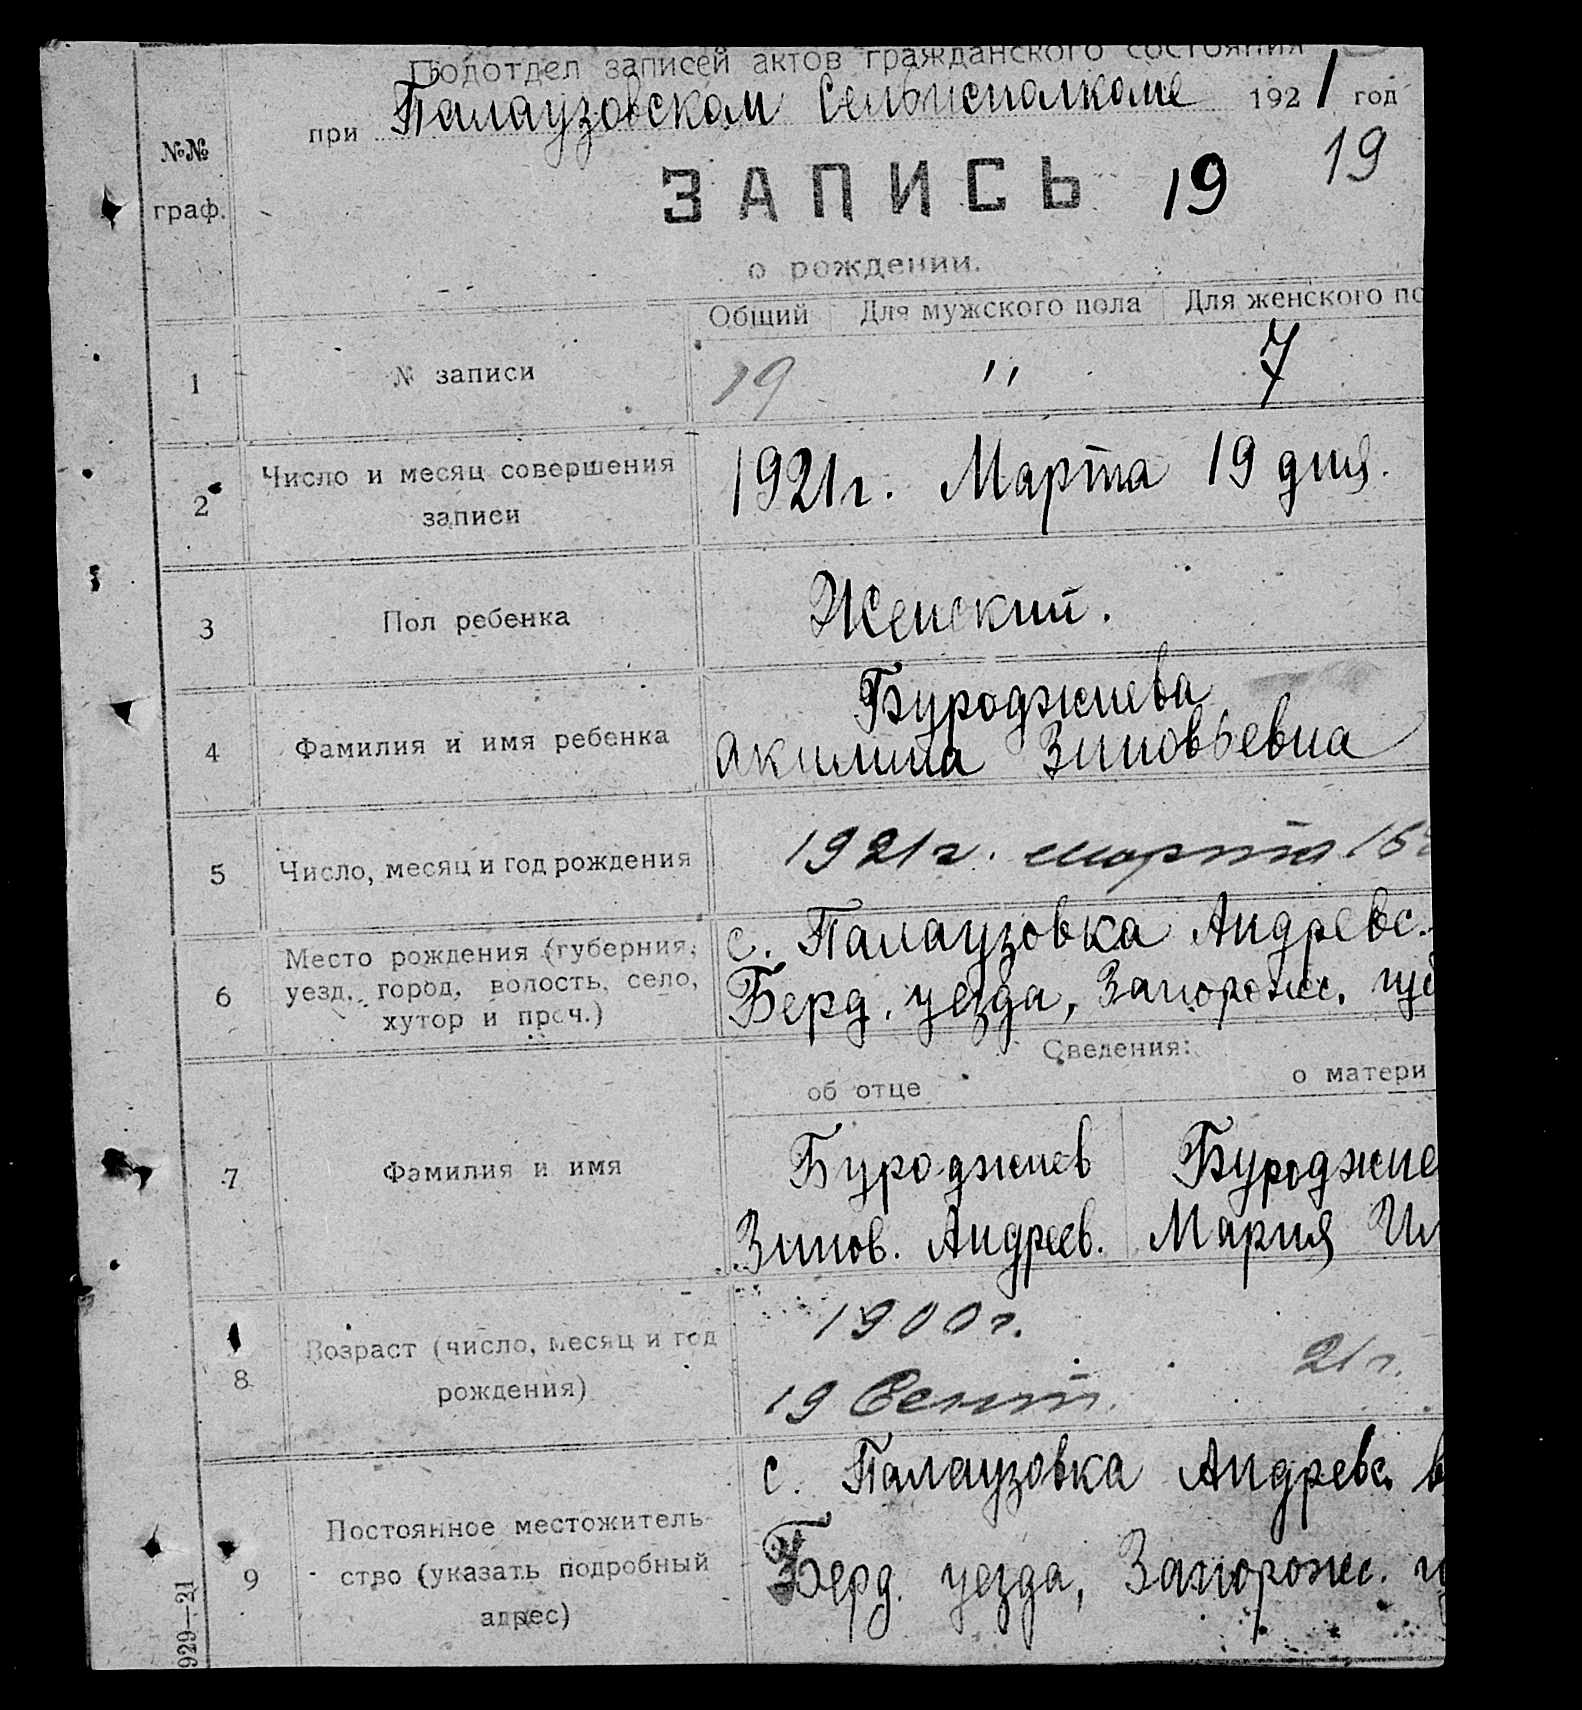 Подотдел записей актов гражданского состояния
при Палаузовском Сельисполкоме 1921 год
№№
граф.
ЗАПИСЬ 19 19
о рождении.
Общий Для мужского пола Для женского по
1 № записи 19 " 7
2 Число и месяц совершения
записи
1921 г. Марта 19 дня.
3 Пол ребенка Женский.
4 Фамилия и имя ребенка
Буроджиева
Акилина Зиновьевна
5 Число, месяц и год рождения 1921 г. марта
6 Место рождения (губерния,
уезд, город, волость, село,
хутор и проч.)
с. Палаузовка Андревс.
Берд. уезда, Запорожс. гу
Сведения:
об отце о матери
7 Фамилия и имя
Буроджиев Буроджие
Зинов. Андреев. Мария Ил
8 Возраст (число, месяц и год
рождения)
1900 г.
19 Сент. 21 г.
9 Постоянное местожитель-
ство (указать подробный
адрес)
с. Палаузовка Андревс в
Берд. уезда, Запорожс. г
929—21